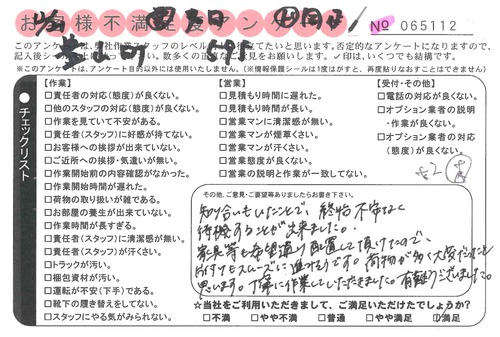 お客様不満足度アンケート
No 065112
このアンケートは、弊社作業スタッフのレベル
立てたいと思います。否定的なアンケートになりますので、
記入後シール
い。数多くの正
見をお願いします。✓印は、いくつでも結構です。
※このアンケートは、アンケート目的以外には使用いたしません。(※情報保護シールは1度はがすと、再度貼りなおすことはできません)
チェックリスト
【作業】
□責任者の対応(態度)が良くない。
□他のスタッフの対応(態度)が良くない。
□作業を見ていて不安がある。
□責任者(スタッフ)に好感が持てない。
□お客様への挨拶が出来ていない。
□ご近所への挨拶・気遣いが無い。
□作業開始前の内容確認がなかった。
□作業開始時間が遅れた。
□荷物の取り扱いが雑である。
□お部屋の養生が出来ていない。
□作業時間が長すぎる。
□責任者(スタッフ)に清潔感が無い。
□責任者(スタッフ)が汗くさい。
□トラックが汚い。
□梱包資材が汚い。
□運転が不安(下手)である。
□靴下の履き替えをしてない。
□スタッフにやる気がみられない。
【営業】
□見積もり時間に遅れた。
□見積もり時間が長い。
□営業マンに清潔感が無い。
□営業マンが煙草くさい。
□営業マンが汗くさい。
□営業態度が良くない。
□営業の説明と作業が一致してない。
【受付・その他】
□電話の対応が良くない。
□オプション業者の説明・作業が良くない。
□オプション業者の対応(態度)が良くない。
その他、ご意見・ご要望等ありましたらお書き下さい。
知り合いもいたことで、終始不安なく
待機することが出来ました。
家具等も希望通り配置して頂けたので、
片付けもスムーズに進みそうです。荷物が多く大変だったと
思います。丁寧に作業していただきました。有難うございました。
☆当社をご利用いただきまして、ご満足いただけたでしょうか?
□不満 □やや不満 □普通 □やや満足 ☑満足